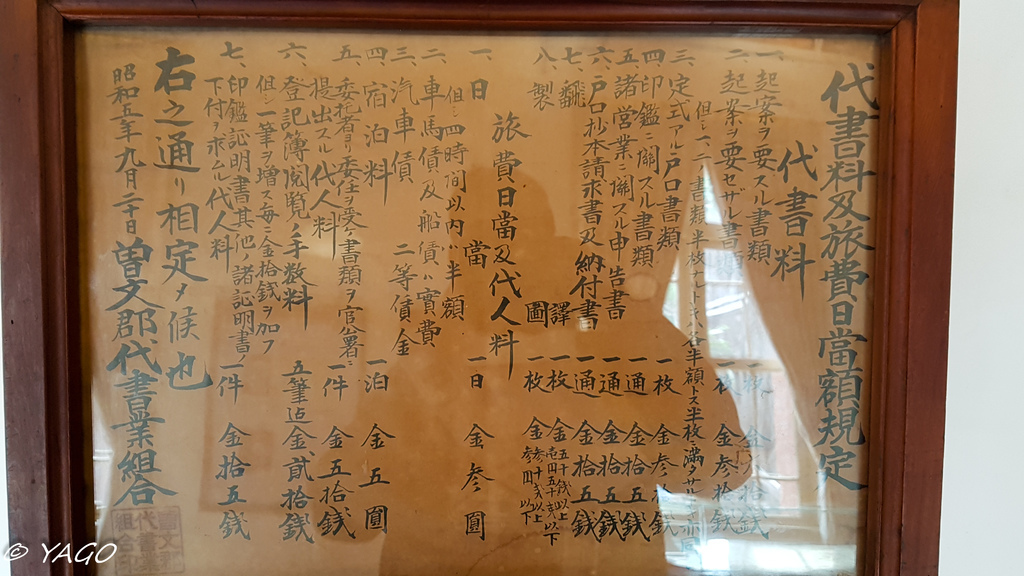 代書料及旅費日當額規定
代書料
一、起案ヲ要スル書類 一枚 金 拾錢
二、起案ヲ要セザル書書類 一枚 金參拾錢
但シ一、二ノ書類ハ半枚 半額トス半枚満タサル
三、定式アル戸口書類 一枚 金參拾錢
四、印鑑ニ關スル書類 一通 金拾五錢
五、諸営業ニ關スル申告書 一通 金拾五錢
六、戸口抄本請求書及納付書 一通 金拾五錢
七、飜譯 一枚 金五十錢以上壱円五十錢以下
八、製圖 一枚 金參十錢以上參円以下
旅費日當及代人料
一、日當 一日 金參圓
但シ四時間以内ハ半額
二、車馬債及船債ハ實費
三、汽車債 二等債金
四、宿泊料 一泊 金五圓
五、委託者ヨリ委任ヲ受ケ書類ヲ官署
提出スル代人料 一件 金五拾錢
六、登記簿閲覧ノ手数料 五筆迄金貳拾錢
但シ一筆ヲ増ス毎ニ金拾錢ヲ加フ
七、印鑑証明書其他ノ諸証明書ノ
下付ヲ求ムル代人料 一件 金拾五錢
右之通リ相定メ候也
昭和五年九月二十日 曽文郡代書業組合
© YAGO